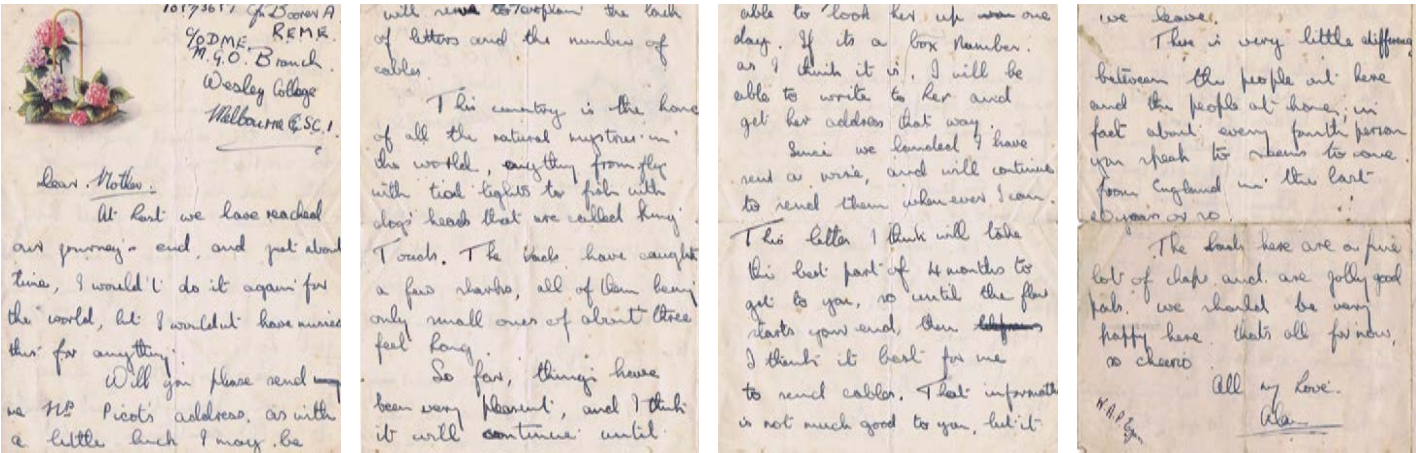 10573657 Cfn Boorer A
R.E.M.E.
C/O D.M.E.
M.G.O. Branch.
Wesley College
Melbourne E, SC.1.
Dear Mother.
At last we have reached
our journey's end, and just about
time, I wouldn't do it again for
the world, but I wouldn't have missed
this for anything.
Will you please send
me Mrs Picot's address, as with
a little luck I may be
will serve to explain the lack
of letters and the number of
cables.
This country is the home
of all the natural mysteries in
the world, anything from fly
with tail lights to fish with
dogs heads that are called King
Toads. The lads have caught
a few sharks, all of them being
only small ones of about three
feet long.
So far, things have
been very pleasent, and I think
it will continue until
able to look her up one
day. If its a box number.
as I think it is, I will be
able to write to her and
get her address that way.
Since we landed I have
sent a wire, and will continue
to send them when ever I can.
This letter I think will take
the best part of 4 months to
get to you, so until the flow
starts your end, then
I think it best for me
to send cables. That informati
is not much good to you, but it
we leave.
There is very little difference
between the people out here
and the people at home, in
fact about every fourth person
you speak to seems to come
from England in the last
20 years or so.
The lads here are a fine
lot of chaps and are jolly good
pals. we should be very
happy here. thats all for now,
so cheerio
All my Love.
Alan